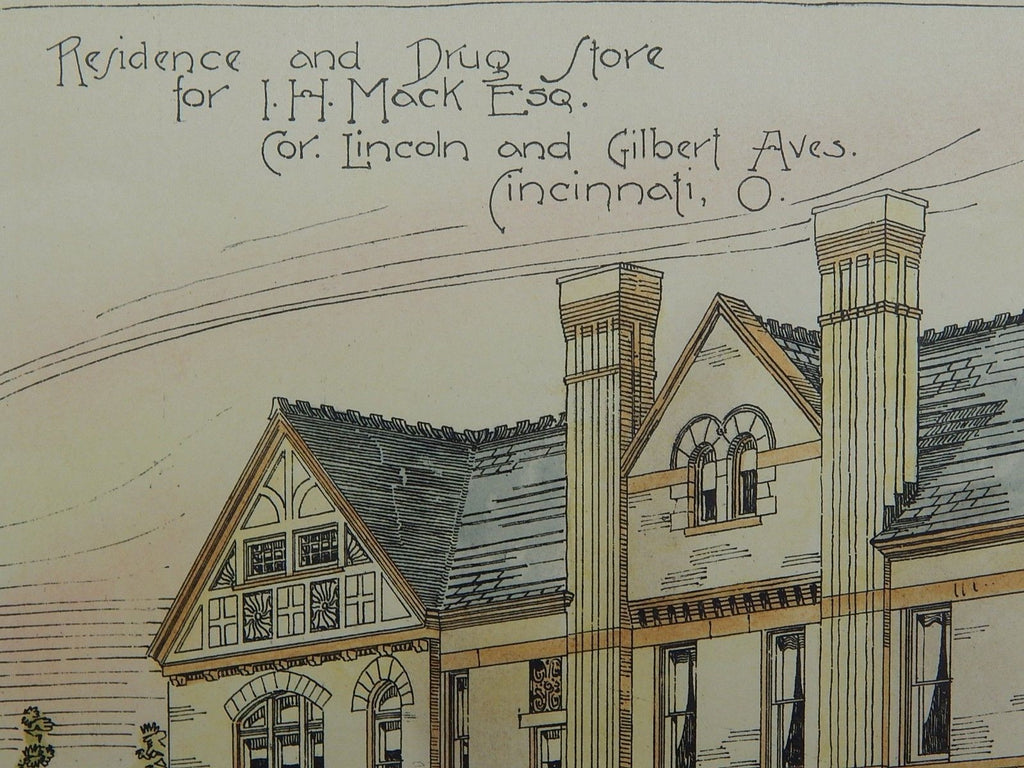 Residence and Drug Store
for I. H. Mack Esq.
Cor. Lincoln and Gilbert Aves.
Cincinnati, O.